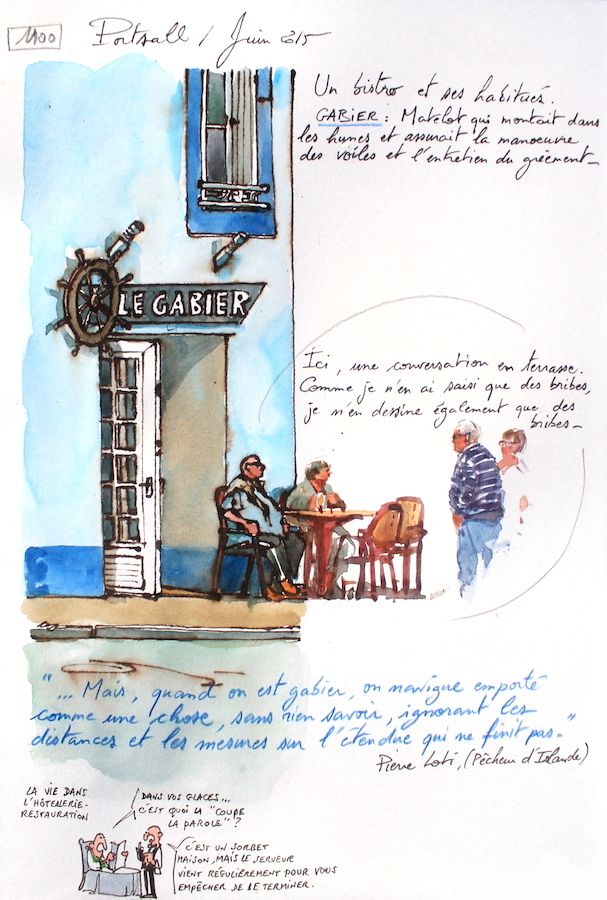 1100
Portsall / Juin 2015
Un bistro et ses habitués.
GABIER : Matelot qui montait dans
les hunes et assurait la manoeuvre
des voiles et l'entretien du gréement_
LE GABIER
Ici, une conversation en terrasse.
Comme je n'en ai saisi que des bribes,
je n'en dessine également que des
bribes_
"... Mais, quand on est gabier, on navigue emporté
comme une chose, sans rien savoir, ignorant les
distances et les mesures sur l'étendue qui ne finit pas."
Pierre Loti, (Pêcheur d'Islande)
LA VIE DANS
L'HÔTELLERIE-
RESTAURATION
DANS VOS GLACES...
C'EST QUOI LA "COUPE
LA PAROLE" ?
C'EST UN SORBET
MAISON, MAIS LE SERVEUR
VIENT RÉGULIÈREMENT POUR VOUS
EMPÊCHER DE LE TERMINER.